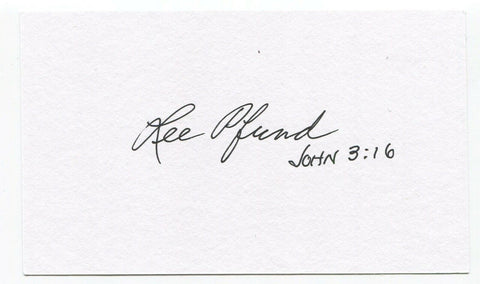 Lee Pfund
JOHN 3:16